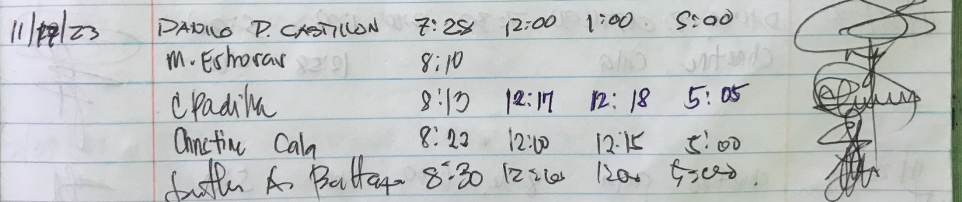 11/22/23 DANILO P. CASTILLON 7:28 12:00 1:00 5:00
M. Estioras 8:10
C Padilla 8:13 12:17 12:18 5:05
Christine Cala 8:22 12:10 12:15 5:00
A. 8:30